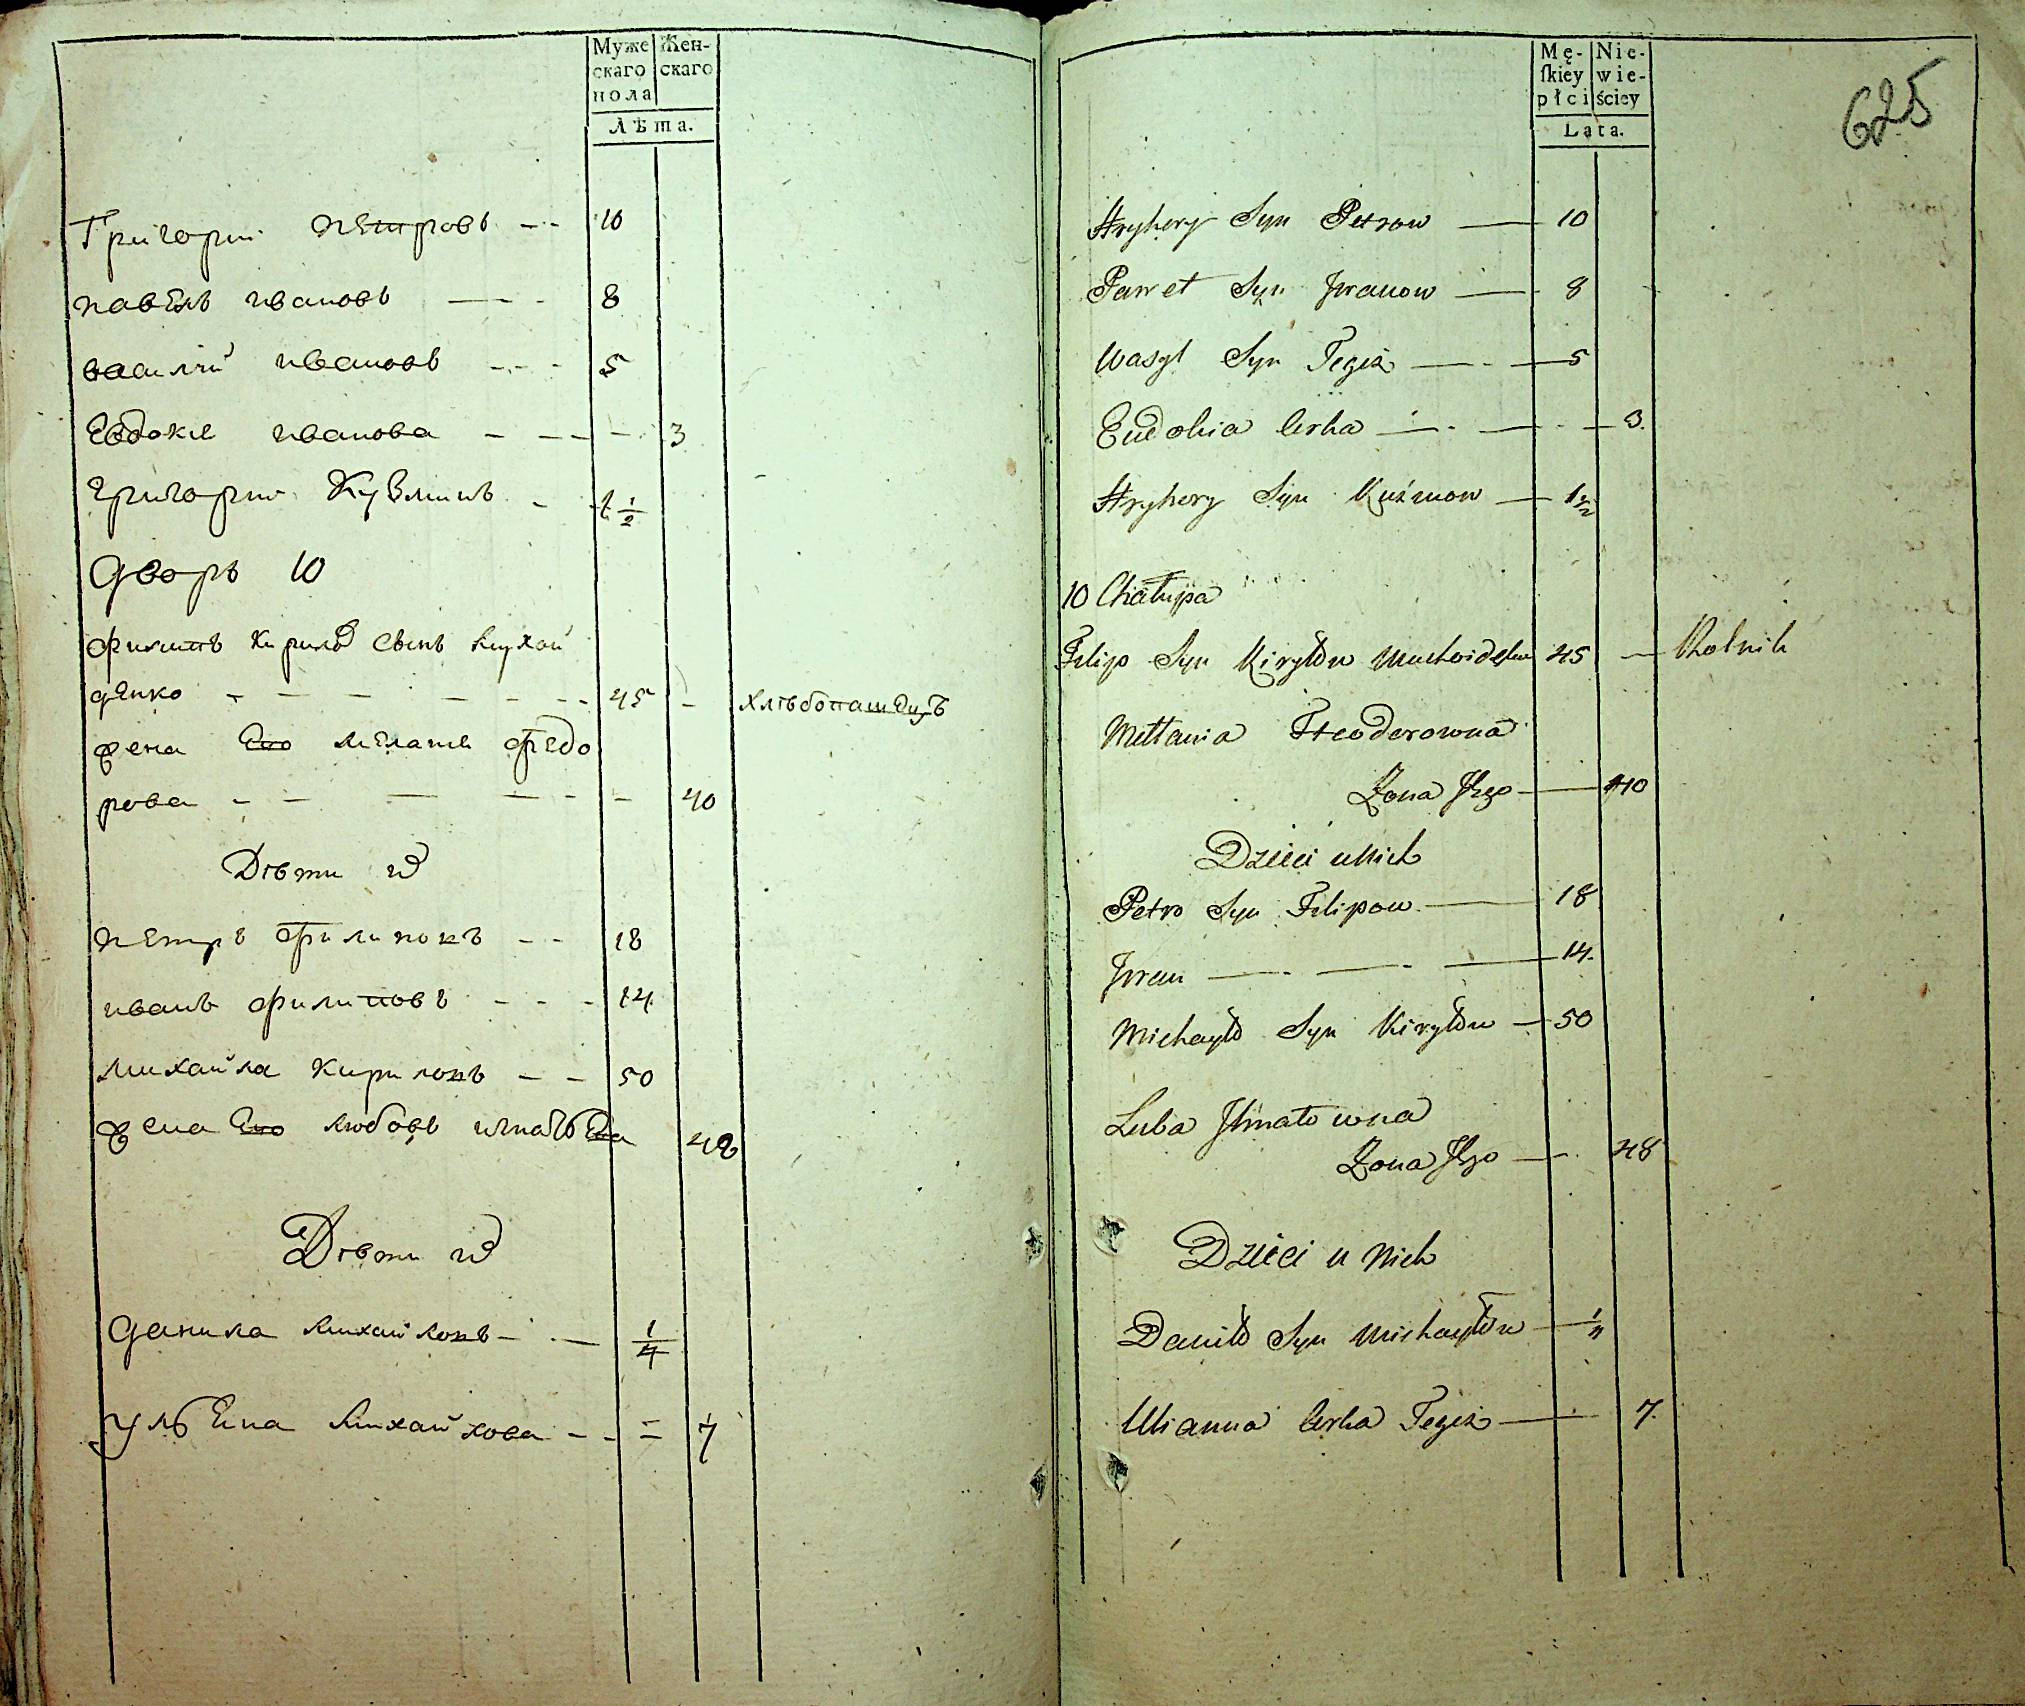 Муже Жен-
скаго скаго
пола
Лѣта.
Григории петровъ 10
павелъ ивановъ 8
василий ивановъ 5
Евдокиe иванова 3
григории Кузминъ 1 1/2
Дворъ 10
филипъ кирилов сынъ
денко 45 хлѣбопашецъ
жена Ево меланиe Федо
рова 40
Дѣти их
петръ филиповъ 18
иванъ филиповъ 14
михайла кириловъ 50
жена Ево любовь игнатьева 48
Дѣти их
данила михайловъ 1/4
ульEна михайлова 7
Mę- Nie-
ſkiey wie-
płci ściey
Lata.
625
Hryhory Syn Petrow 10
Paweł Syn Jwanow 8
Wasyl Syn Tegiż 5
Eudokia Corka 3.
Hryhory Syn Kuźmow 1 1/2
10 Chałupa
Filip Syn Kiryłow 45 Rolnik
Mełłania Fteodorowna
Żona Jego 40
Dzieci u Nich
Petro Syn Filipow 18
Jwan 14.
Michayło Syn Kiryłow 50
Luba Jhnatowna
Żona Jego 48
Dzieci u Nich
Daniło Syn Michayłow 1/4
Ulianna Corka Tegiż 7.